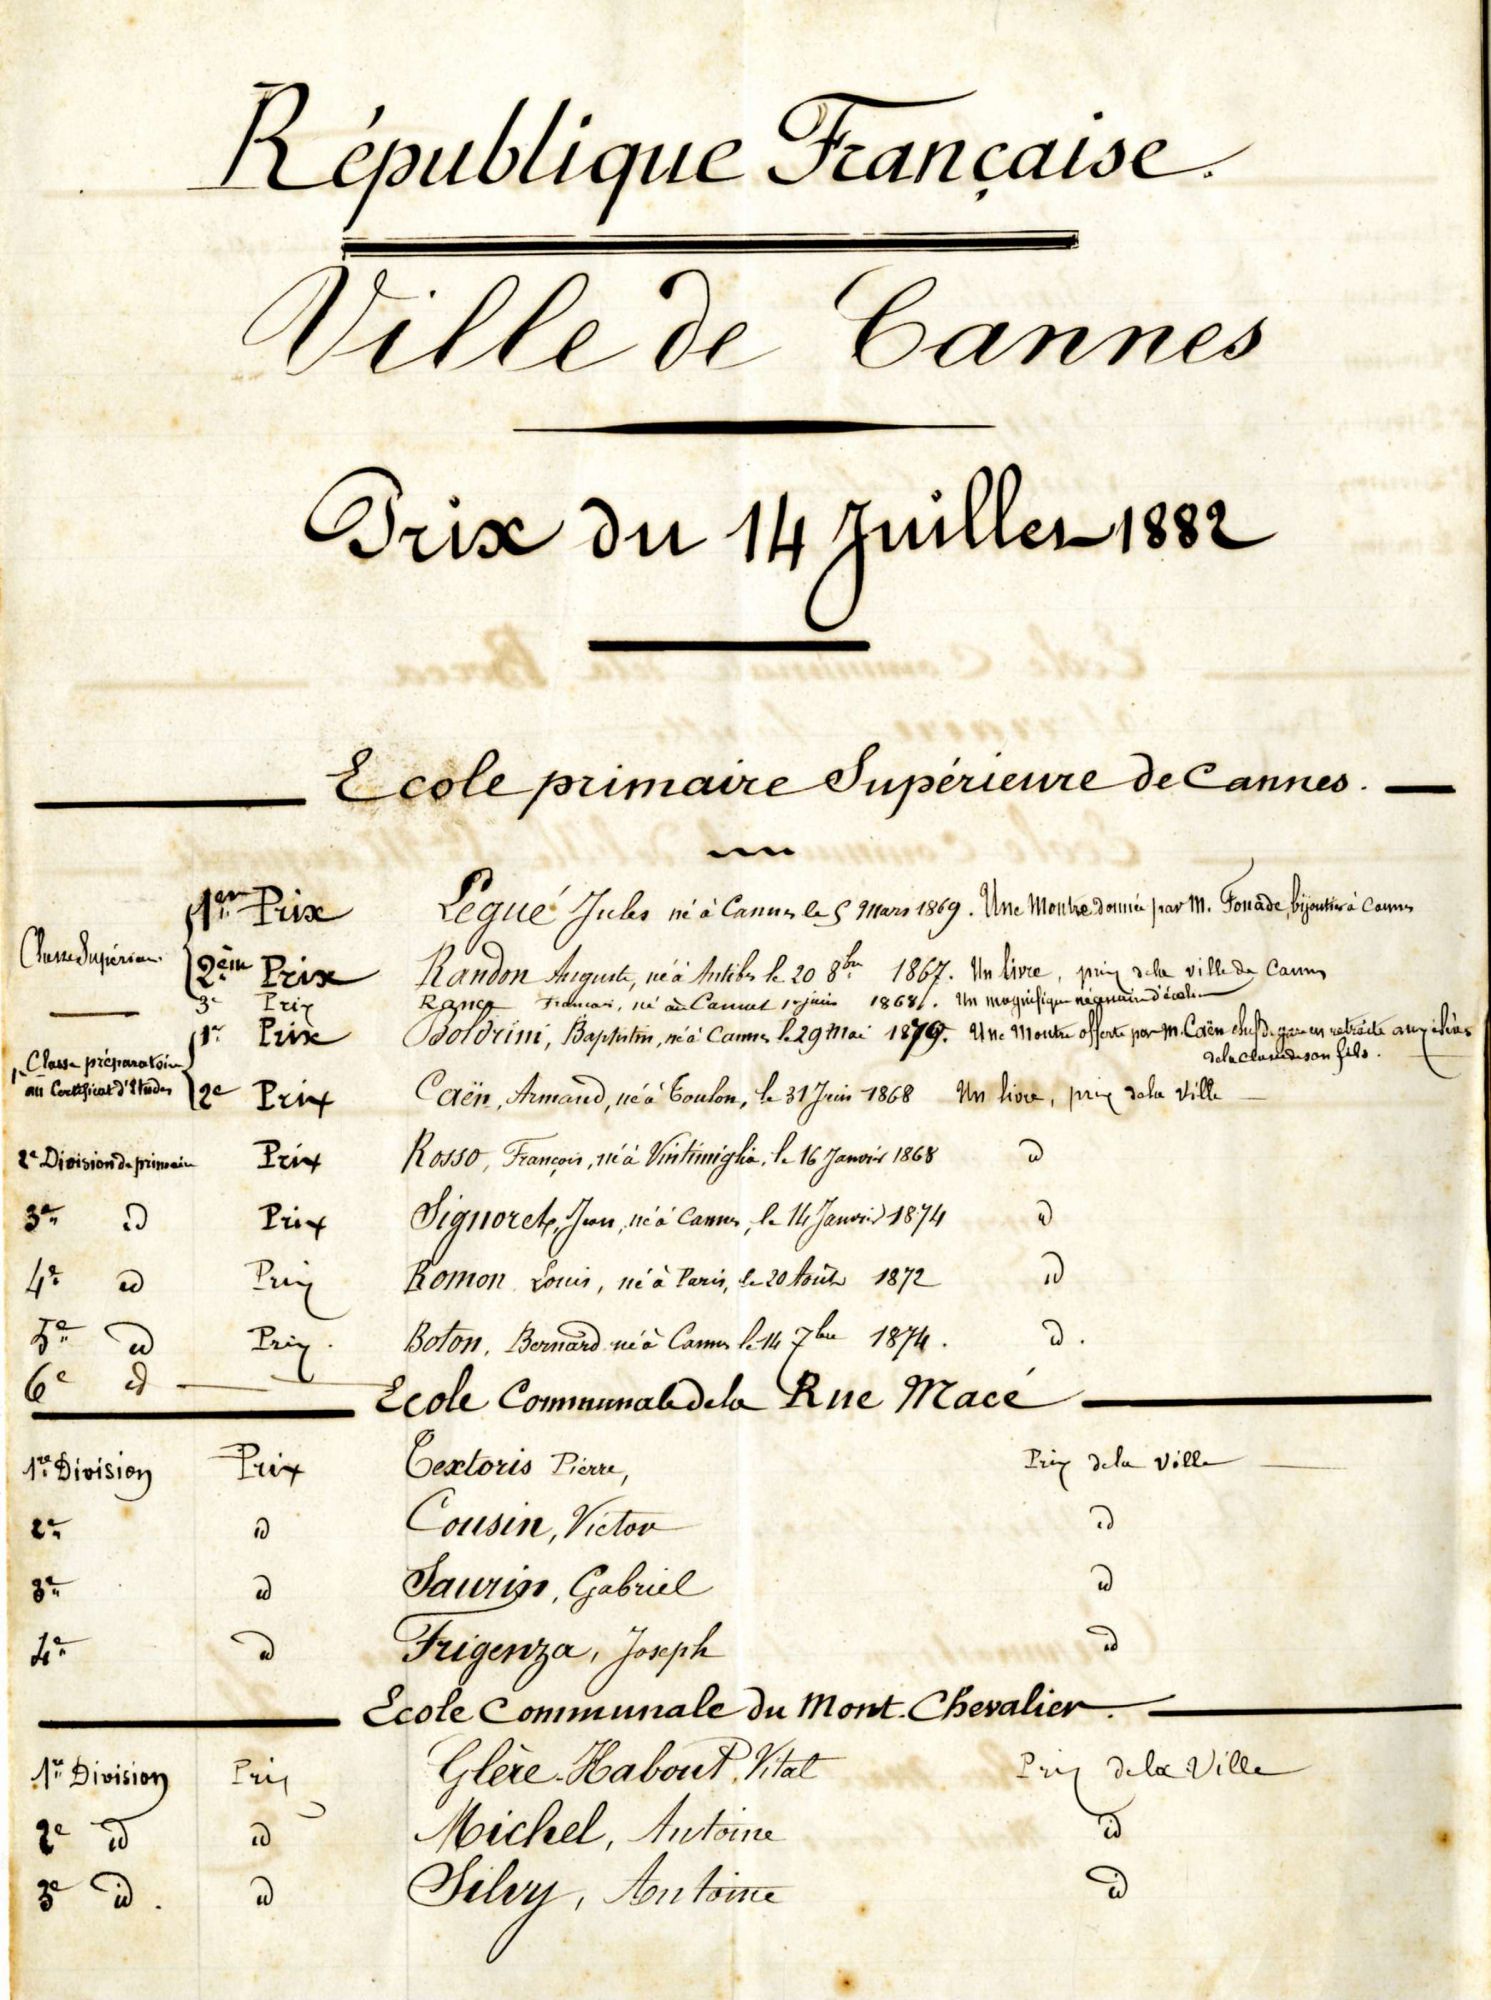 République Française.
Ville de Cannes
Prix du 14 Juillet 1882
Ecole primaire Supérieure de Cannes.
Classe Supérieure 1er Prix Legué Jules né à Cannes le 5 Mars 1869. Une Montre donnée par M. Fouade, bijoutier à Cannes
2ème Prix Randon Auguste, né à Antibes le 20 8bre 1867. Un livre, prix de la ville de Cannes
3e Prix Rance Francois, né au Cannet 1er juin 1868. Un magnifique nécessaire d'école
1re Classe préparatoire au Certificat d'études 1er Prix Boldrini, Baptistin, né à Cannes le 29 mai 1870. Une Montre offerte par M. Caën chef de gare en retraite aux élèves
de la classe de son fils.
2e Prix Caën, Armand, né à Toulon, le 31 Juin 1868 Un livre, prix de la Ville
2e Division de primaire Prix Rosso, François, né à Vintimiglia, le 16 Janvier 1868 id
3e id Prix Signoret, Jean, né à Cannes, le 14 Janvier 1874 id
4e id Prix Romon Louis, né à Paris, le 20 Août 1872 id
5e id Prix. Boton, Bernard né à Cannes le 14 7bre 1874. id.
6e id
Ecole Communale de la Rue Macé
1re Division Prix Textoris Pierre, Prix de la Ville
2e id Cousin, Victor id
3e id Saurin, Gabriel id
4e id Frigenza, Joseph id
Ecole Communale du Mont-Chevalier.
1re Division Prix Glère-Habout, Vital Prix de la Ville
2e id id Michel, Antoine id
3e id. id Silvy, Antoine id